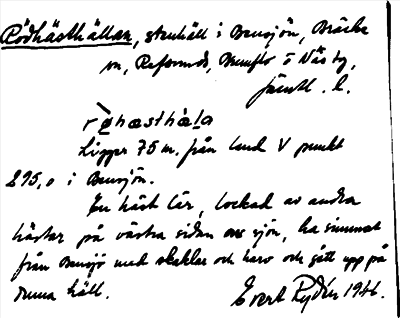 Rödhästhällan, stenhäll i Bensjön, Bräcke
sn, Refsunds, Brunflo o Näs tg,
Jämtl. l.
rö̀hæsthæ̀la
Ligger 75 m. från land V punkt
295,0 i Bensjön.
En häst lär, lockad av andra
hästar på västra sidan om sjön, ha simmat
från Bensjö med skaklar och harv och gått upp på
denna häll.
Evert Rydén 1946.